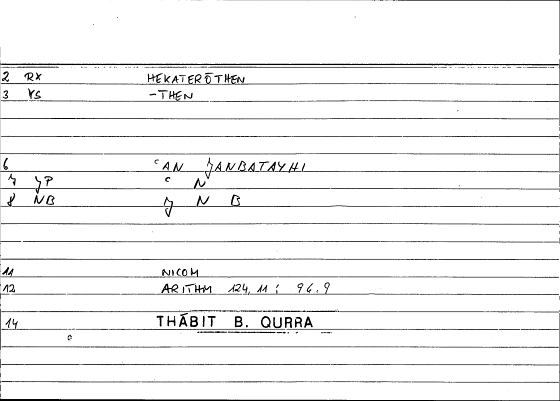 2 RX HEKATERŌTHEN
3 YS -THEN
6 ʿAN ȷANBATAYHI
7 ȷP ʿ N
8 NB ȷ N B
11 NICOM
12 ARITHM 124, 11 ; 96.9
14 THĀBIT B. QURRA